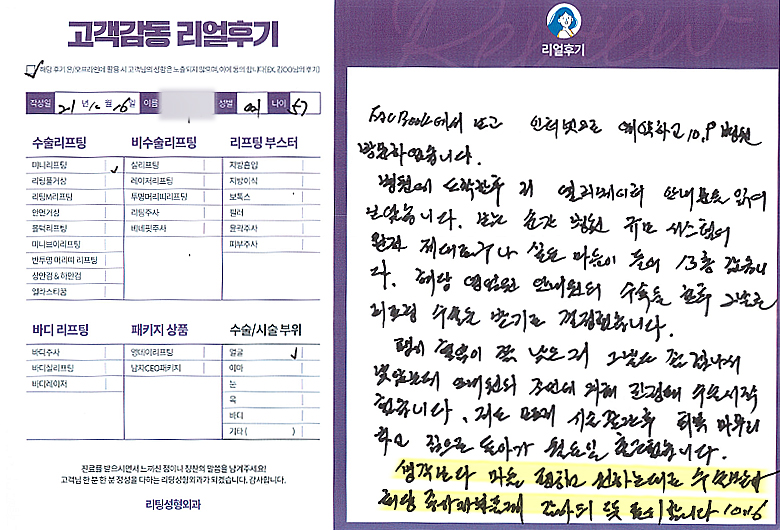 고객감동 리얼후기
해당 후기 온/오프라인에 활용 시 고객님의 성함은 노출되지 않으며, 이에 동의 합니다(EX.김OO님의 후기)
작성일 21년 10월 16일 이름 성별 여 나이 57
수술리프팅
미니리프팅
리팅풀거상
리팅M리프팅
안면거상
울럭리프팅
미니브이리프팅
반투명 머리띠 리프팅
상안검 & 하안검
엘라스티꿈
비수술리프팅
실리프팅
레이저리프팅
투명머리띠리프팅
리팅주사
비네핏주사
리프팅 부스터
지방흡입
지방이식
보톡스
필러
윤곽주사
피부주사
바디 리프팅
바디주사
바디실리프팅
바디레이저
패키지 상품
영데이리프팅
남자CEO패키지
수술/시술 부위
얼굴
이마
눈
목
바디
기타 ( )
진료를 받으시면서 느끼신 점이나 칭찬의 말씀을 남겨주세요!
고객님 한 분 한 분 정성을 다하는 리팅성형외과가 되겠습니다. 감사합니다.
리팅성형외과
Review
리얼후기
에서 보고 인터넷으로 예약하고 10.9 병원
방문하였습니다.
병원에 도착한후 1F 엘리베이터 안내문을 읽어
보았습니다. 보는 순간 병원 규모 시스템이
제대로구나 싶은 마음이 들어 13층 갔습니
다. 해당 안내원의 수속을 한후 그날로
리프팅 수술을 받기로 결정했습니다.
조언에 의해 수술시작
했습니다. 마무리
하고 집으로 돌아가 월요일 출근했습니다.
생각보다 마음 편하고 원하는대로 수술
해당 감사의 뜻 표시합니다 10.16